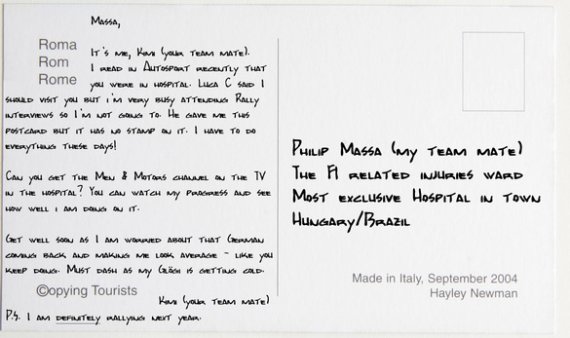 Massa,
Roma
Rom
Rome
It's me, Kimi (your team mate).
I read in Autosport recently that
you were in hospital. Luca C said I
should visit you but i'm very busy attending Rally
interviews so I'm not going to. He gave me this
postcard but it has no stamp on it. I have to do
everything these days!
Can you get the Men & Motors channel on the TV
in the hospital? You can watch my progress and see
how well i am doing on it.
Get well soon as I am worried about that German
coming back and making me look average - like you
keep doing. Must dash as my Glögi is getting cold.
©opying Tourists
Kimi (your team mate)
P.S. I am definitely rallying next year.
Philip Massa (my team mate)
The F1 related injuries ward
Most exclusive Hospital in town
Hungary/Brazil
Made in Italy, September 2004
Hayley Newman